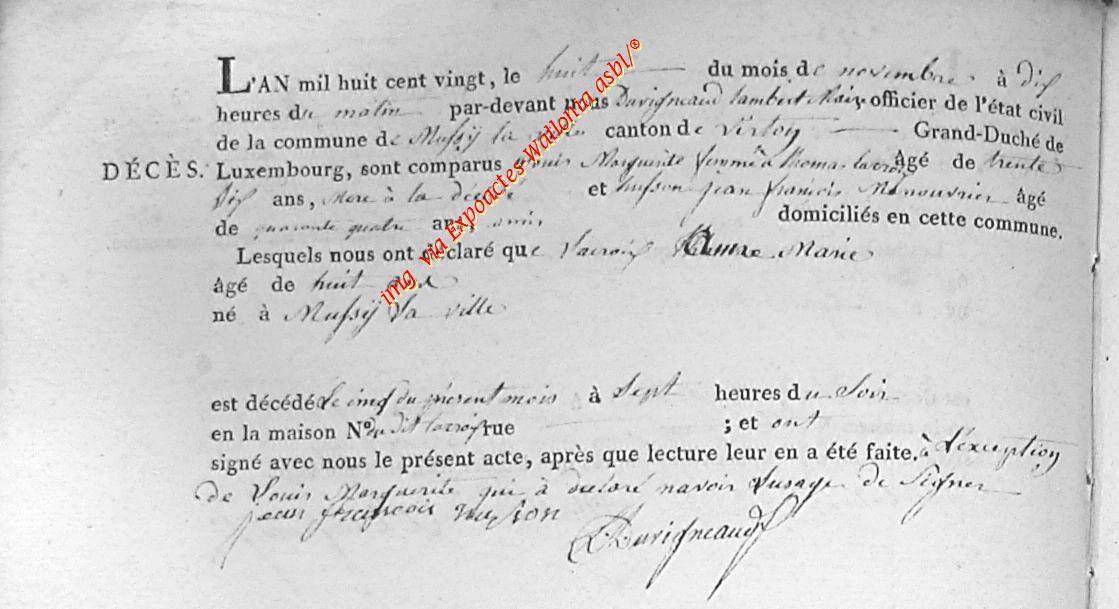 L'AN mil huit cent vingt, le huit du mois de novembre à dix
heures du matin par-devant nous Duvigneaud Lambert Maire officier de l'état civil
de la commune de Mussy la ville canton de virton Grand-Duché de
DÉCÈS. Luxembourg, sont comparus Louis Marguerite femme à Thomas lacroix âgé de trente
dix ans, Mere à la décédé et husson jean françois Manouvrier âgé
de quarante quatre ans, amis domiciliés en cette commune.
Lesquels nous ont déclaré que Lacroix Marie
âgé de huit ans
né à Mussy la ville
est décédé le cinq du présent mois à Sept heures du Soir
en la maison No. du dit lacroix rue ; et ont
signé avec nous le présent acte, après que lecture leur en a été faite. à L'exception
de Louis Marguerite qui à déclaré navoir Lusage de Signer
jean françois husson
Duvigneaud
img via Expoactes-Wallonia asbl/®